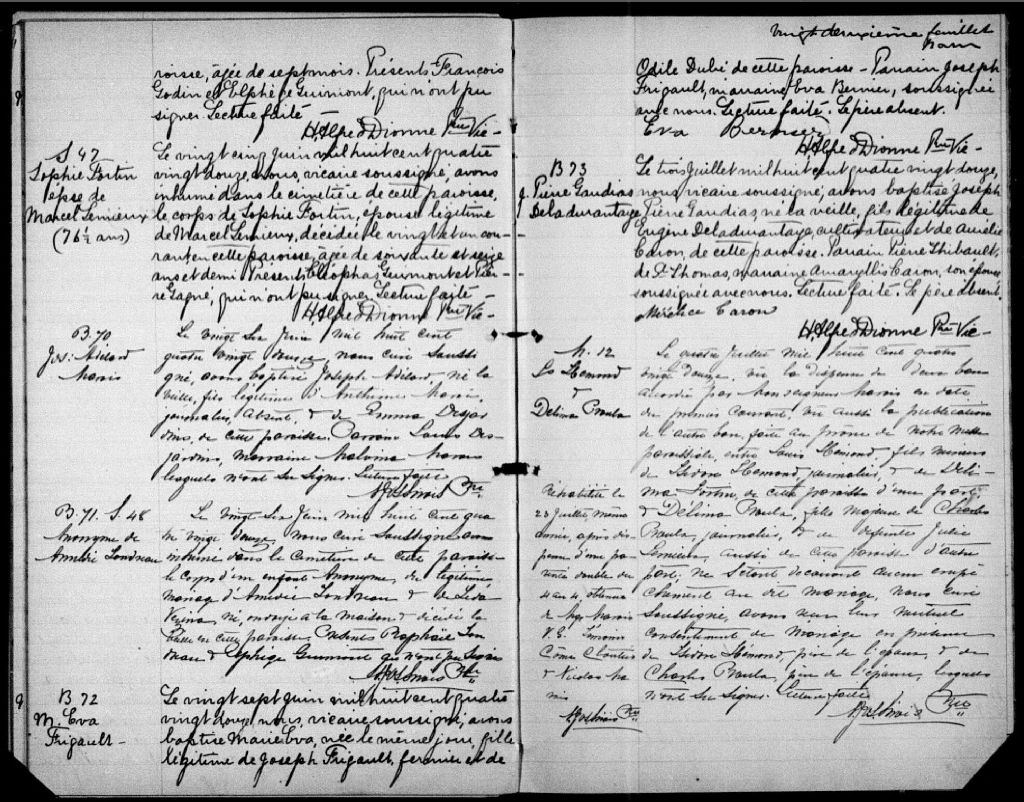 roisse, âgée de sept mois. Présents François
Godin et Elphège Guimont, qui n'ont pu
signer. Lecture faite
H. Alfred Dionne Ptre Vic-
S 47
Sophie Fortin
épse de
Marcel Lemieux
(76½ ans)
Le vingt cinq juin mil huit cent quatre
vingt douze, nous, vicaire soussigné, avons
inhumé dans le cimetière de cette paroisse,
le corps de Sophie Fortin, épouse légitime
de Marcel Lemieux, décédée le vingt et un cou-
rant en cette paroisse, âgée de soixante et seize
ans et demi. Présents Cléophas Guimont et Pier-
re Gagné, qui n'ont pu signer. Lecture faite -
H. Alfred Dionne Ptre Vic-
B. 70
Jos. Adélard
Le vingt six Juin mil huit cent
quatre vingt douze, nous curé soussi-
gné, avons baptisé Joseph Adélard, né la
veille, fils légitime d'Anthime
journalier, absent, & de Emma Desjar-
dins, de cette paroisse. Parrain Louis Des-
jardins, Marraine Malvina
lesquels n'ont su signer. Lecture faite
Ptre
B. 71. S. 48
Anonyme de
Amédé
Le vingt six Juin mil huit cent qua-
tre vingt douze, nous curé soussigné avons
inhumé dans le cimetière de cette paroisse
le corps d'un enfant Anonyme, du légitime
mariage d'Amédée & de
né, ondoyé à la maison & décédé la
veille en cette paroisse. Présents Raphaël
& Elphége Guimont qui n'ont pu signer
Ptre
B 72
M. Eva
Frigault -
Le vingt sept juin mil huit cent quatre
vingt douze, nous, vicaire soussigné, avons
baptisé Marie Eva, née le même jour, fille
légitime de Joseph Frigault, fermier et de
vingt deuxième feuillet
Odile Dubé de cette paroisse - Parrain Joseph
Frigault, marraine Eva Bernier, soussignée
avec nous. Lecture faite. Le père absent.
Eva Bernier
H. Alfred Dionne Ptre Vic-
B 73
J. Pierre Gaudias
Deladurantaye
Le trois juillet mil huit cent quatre vingt douze,
nous, vicaire soussigné, avons baptisé Joseph
Pierre Gaudias, né la veille, fils légitime de
Eugène Deladurantaye, cultivateur et de Aurélie
Caron, de cette paroisse. Parrain Pierre Thibault,
de St Thomas, marraine Amaryllis Caron, son épouse
soussignée avec nous. Lecture faite. Le père absent.
Caron
H. Alfred Dionne Ptre Vic-
M. 12
Ls Hémond
&
Délima Proulx
Le quatre Juillet mil huit cent quatre
vingt douze, vu la dispense de deux bans
accordée par Monseigneur Marois en date
du premier courant, vu aussi la publication
de l'autre ban, faite au prône de notre Messe
paroissiale, entre Louis Hémond, fils mineur
de Isidore Hémond, journalier, & de Déli-
ma Fortin, de cette paroisse d'une part;
& Délima Proulx, fille majeure de Charles
Proulx, journalier, & de défunte Julie
Lemieux, aussi de cette paroisse d'autre
part; ne s'étant découvert aucun empê-
chement au dit mariage, nous curé
soussigné, avons reçu leur mutuel
consentement de mariage en présence
de Isidore Hémond, père de l'époux, & de
Charles Proulx, père de l'épouse, lesquels
n'ont su signer. Lecture faite
Ptre
Réhabilité le
23 Juillet, même
année, après dis-
pense d'une pa-
renté double du
4 au 4, obtenue
de Mgr Marois
V. G. Témoins
Côme Cloutier
Ptre